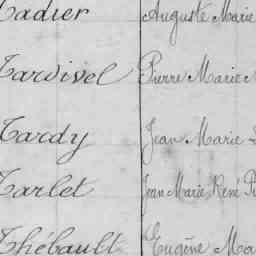 Tadier Auguste Marie
Tardivel Pierre Marie
Tardy Jean Marie
Tarlet Jean Marie René
Thébault Eugène